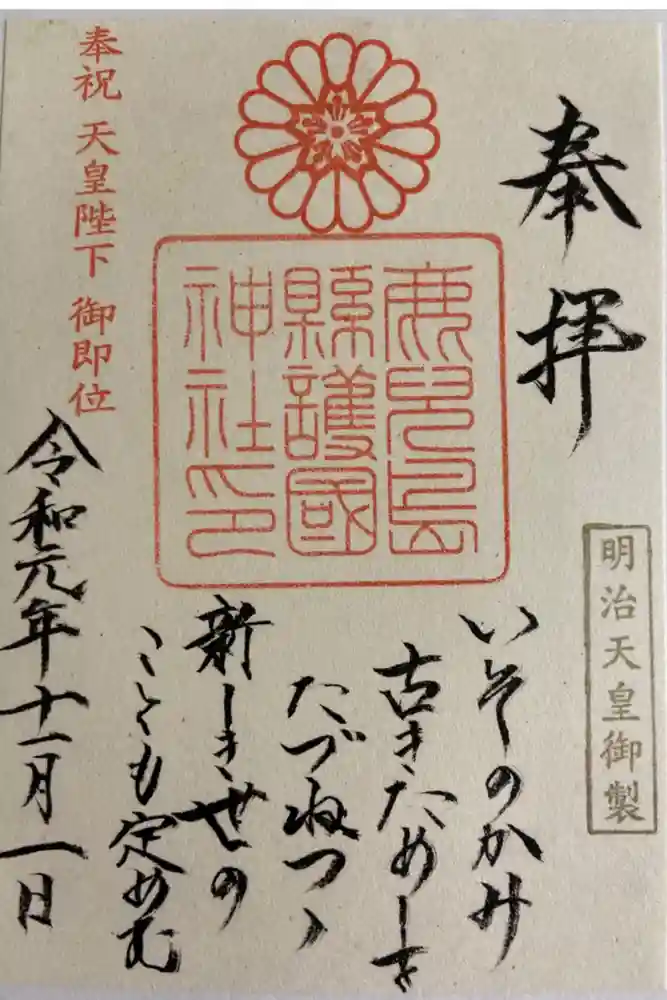 奉拝
明治天皇御製
いそのかみ
古きためしを
たづねつゝ
新しき世の
ことも定めむ
鹿児島
縣護國
神社印
奉祝 天皇陛下 御即位
令和元年十一月一日